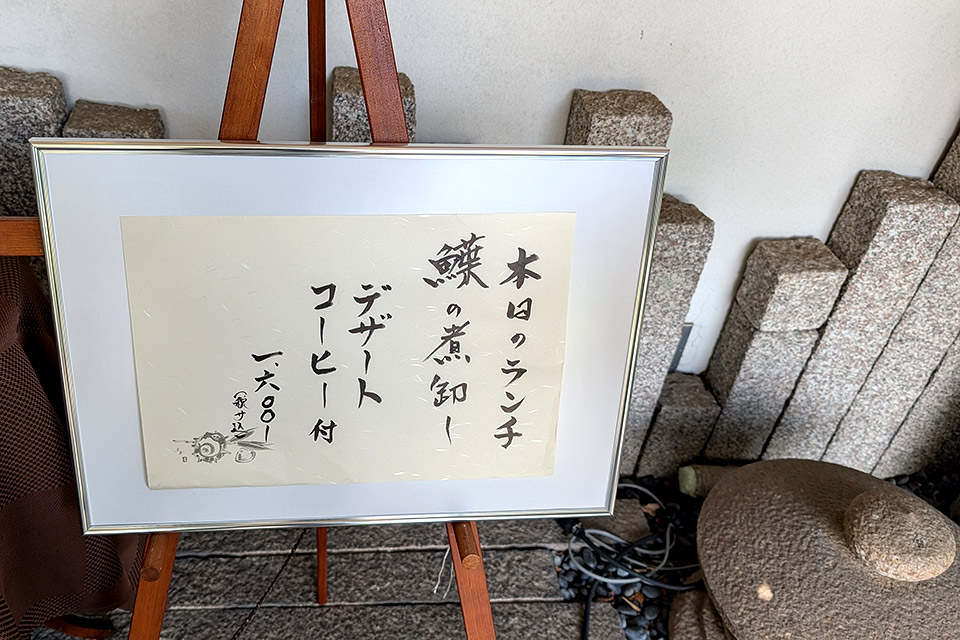 本日のランチ
鰈の煮卸し
デザート
コーヒー付
一、六〇〇ー
(税サ込)